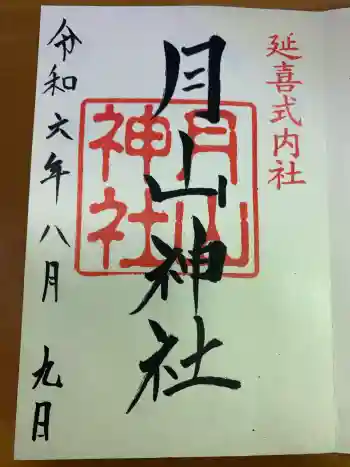 延喜式内社
月山神社
月山神社
令和六年八月 九日